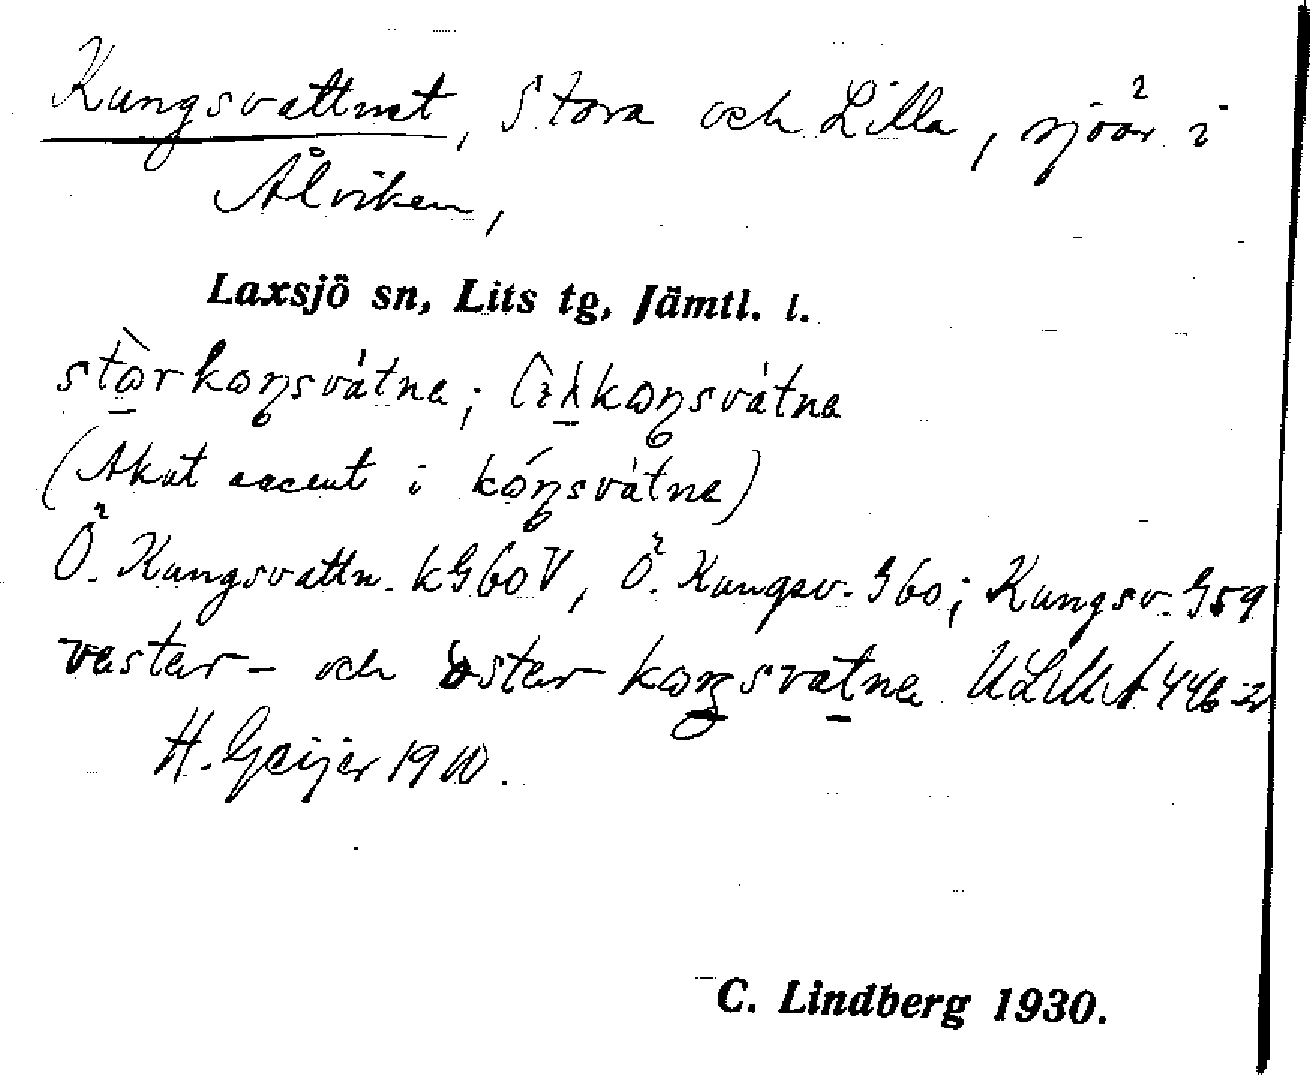 Kungsvattnet, Stora och Lilla, sjöar i
Ålviken,
Laxsjö sn, Lits tg, Jämtl. l.
(Akut accent i kóŋsvátna)
Ö. Kungsvattn. kG60V, Ö. Kungsv. G60; Kungsv. G59
vestar- och östar koŋsvatna ULMA 446:2
H. Geijer 1910.
C. Lindberg 1930.